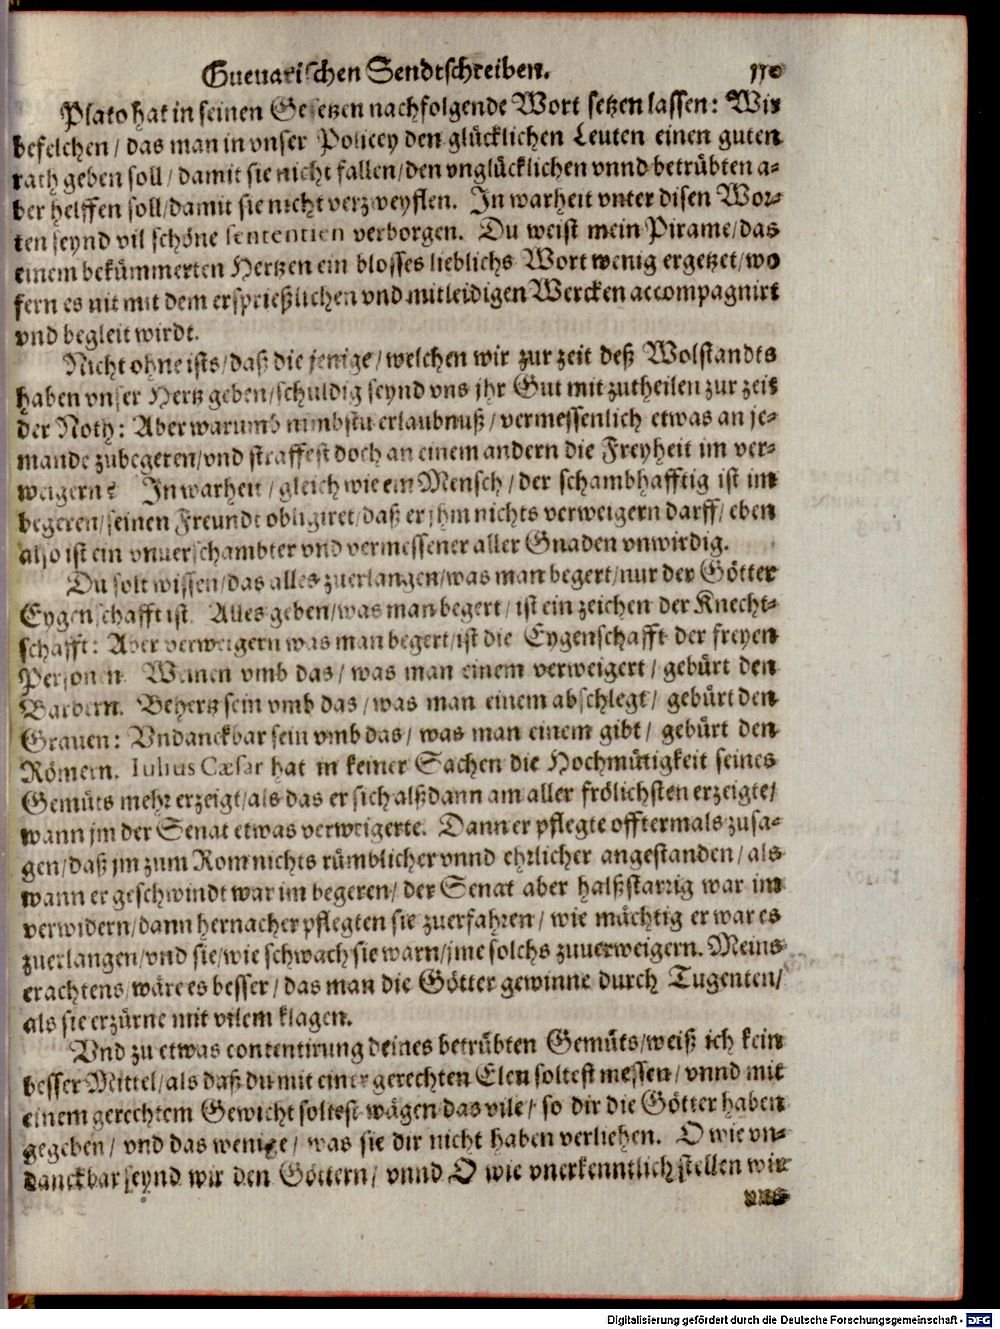 Guevarischen Sendtschreiben. 110
Plato hat in seinen Gesetzen nachfolgende Wort setzen lassen: Wir
befelchen / das man in vnser Policey den glücklichen Leuten einen guten
rath geben soll / damit sie nicht fallen / den vnglücklichen vnnd betrübten a-
ber helffen soll / damit sie nicht verzweyflen. In warheit vnter disen Wor-
ten seynd vil schöne sententien verborgen. Du weist mein Pirame / das
einem bekümmerten Hertzen ein blosses lieblichs Wort wenig ergetzet / wo
fern es nit mit dem ersprießlichen vnd mitleidigen Wercken accompagnirt
vnd begleit wirdt.
Nicht ohne ists / daß die jenige / welchen wir zur zeit deß Wolstandts
haben vnser Hertz geben / schuldig seynd vns jhr Gut mit zutheilen zur zeit
der Noth: Aber warumb nimbstu erlaubnuß / vermessenlich etwas an je-
mande zubegeren / vnd straffest doch an einem andern die Freyheit im ver-
weigern? In warheit / gleich wie ein Mensch / der schambhafftig ist im
begeren / seinen Freundt obligiret / daß er jhm nichts verweigern darff / eben
also ist ein vnuerschambter vnd vermessener aller Gnaden vnwirdig.
Du solt wissen / das alles zuerlangen / was man begert / nur der Götter
Eygenschafft ist. Alles geben / was man begert / ist ein zeichen der Knecht-
schafft: Aber verweigern was man begert / ist die Eygenschafft der freyen
Personen. Weinen vmb das / was man einem verweigert / gebürt den
Barbern. Behertz sein vmb das / was man einem abschlegt / gebürt den
Grauen: Vndanckbar sein vmb das / was man einem gibt / gebürt den
Römern. Iulius Cæsar hat in keiner Sachen die Hochmütigkeit seines
Gemüts mehr erzeigt / als das er sich alßdann am aller frölichsten erzeigte /
wann jm der Senat etwas verweigerte. Dann er pflegte offtermals zusa-
gen / daß jm zum Rom nichts rümblicher vnnd ehrlicher angestanden / als
wann er geschwindt war im begeren / der Senat aber halßstarrig war im
verwidern / dann hernacher pflegten sie zuerfahren / wie mächtig er war es
zuerlangen / vnd sie / wie schwach sie warn / jme solchs zuuerweigern. Meins
erachtens / wäre es besser / das man die Götter gewinne durch Tugenten /
als sie erzürne mit vilem klagen.
Vnd zu etwas contentirung deines betrübten Gemüts / weiß ich kein
besser Mittel / als daß du mit einer gerechten Elen soltest messen / vnnd mit
einem gerechtem Gewicht soltest wägen das vile / so dir die Götter haben
gegeben / vnd das wenige / was sie dir nicht haben verliehen. O wie vn-
danckbar seynd wir den Göttern / vnnd O wie vnerkenntlich stellen wir
vns
Digitalisierung gefördert durch die Deutsche Forschungsgemeinschaft - DFG